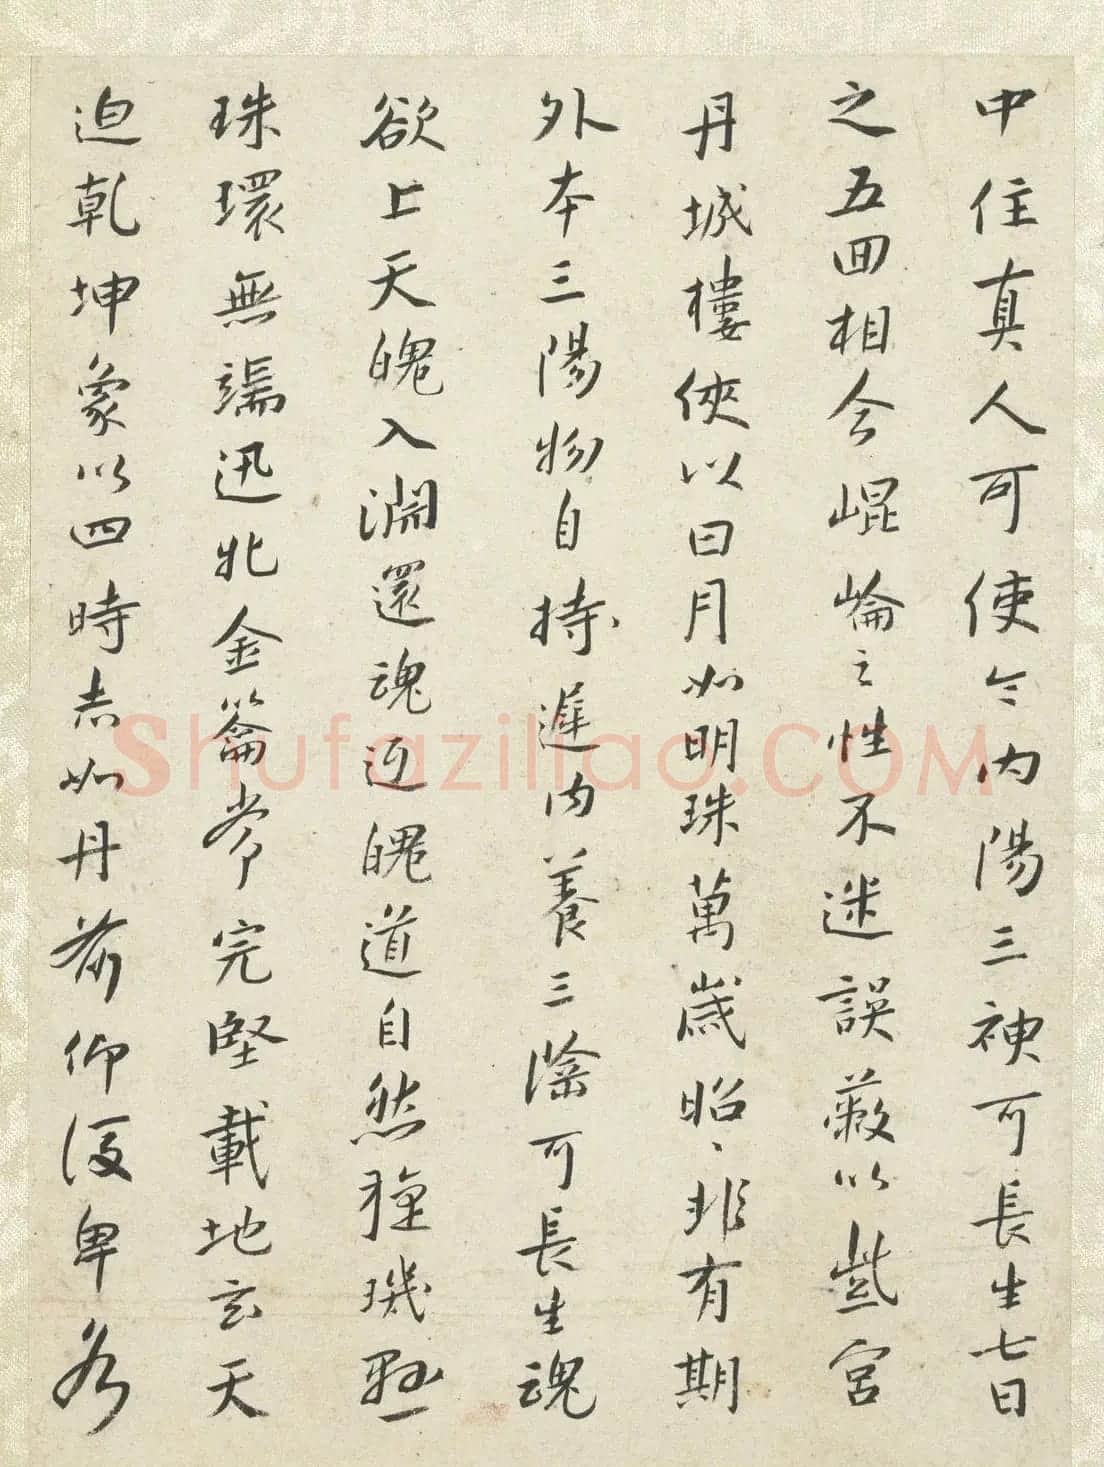 中住真人可使令內陽三神可長生七日
之五回相合崐崘之性不迷誤蔽以紫宮
丹城樓俠以日月如明珠萬歲昭、非有期
外本三陽物自持遲內養三陰可長生魂
欲上天魄入淵還魂返魄道自然琁璣懸
珠環無端迅牝金籥常完堅載地玄天
迫乾坤象以四時赤如丹前仰後卑各
Shufaziliao.COM